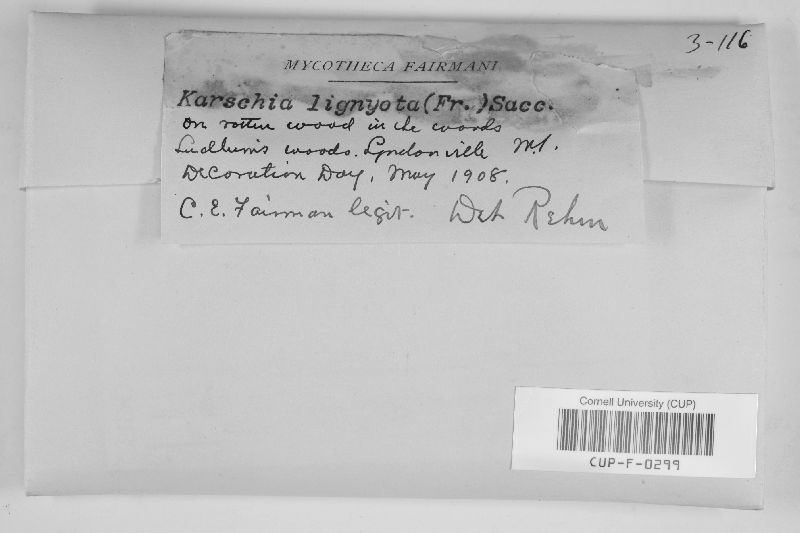 3-116
MYCOTHECA FAIRMANI
Karschia lignyota (Fr.) Sacc.
On rotten wood in the woods
Ludlum's woods. Lyndonville N.Y.
Decoration Day, May 1908.
C. E. Fairman legit. Det Rehm
Cornell University (CUP)
CUP-F-0299